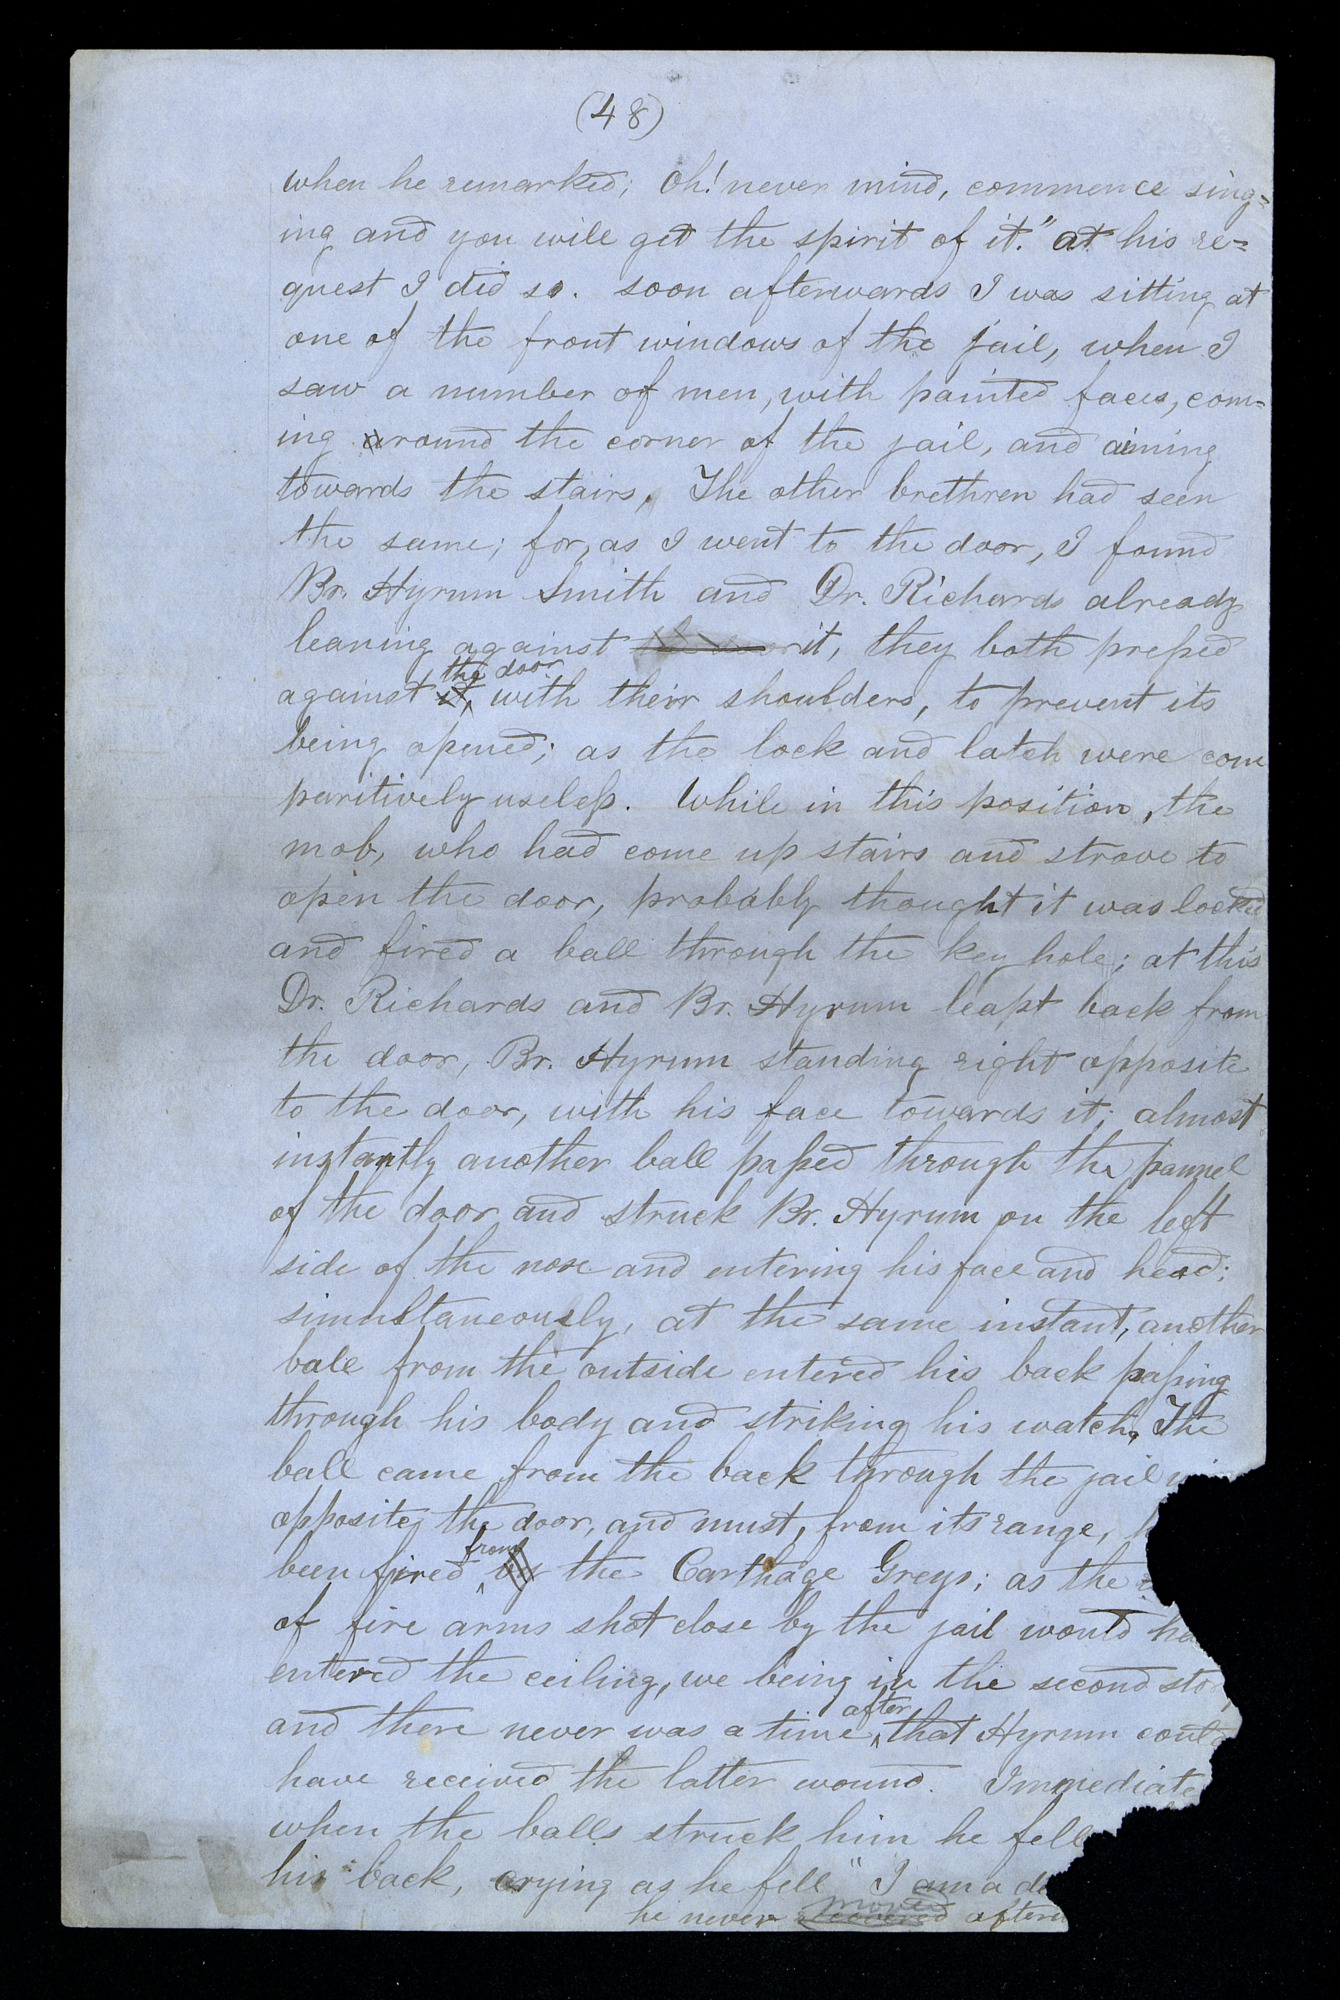 (48)
when he remarked; Oh! never mind, commence sing=
ing and you will get the spirit of it." at his re=
quest I did so. soon afterwards I was sitting at
one of the front windows of the jail, when I
saw a number of men, with painted faces, com=
ing around the corner of the jail, and aiming
towards the stairs. The other brethren had seen
the same; for, as I went to the door, I found
Br. Hyrum Smith and Dr. Richards already
leaning against it, they both preſsed
the door
against it, with their shoulders, to prevent its
being opened; as the lock and latch were com
paritively useleſs. While in this position, the
mob, who had come up stairs and strove to
open the door, probably thought it was locked
and fired a ball through the key hole; at this
Dr. Richards and Br. Hyrum leapt back from
the door, Br. Hyrum standing right opposite
to the door, with his face towards it; almost
instantly another ball paſsed through the pannel
of the door and struck Br. Hyrum on the left
side of the nose and entering his face and head;
simultaneously, at the same instant, another
ball from the outside entered his back paſsing
through his body and striking his watch. The
ball came from the back through the jail
opposite the door, and must, from its range,
from
been fired by the Carthage Greys; as the
of fire arms shot close by the jail would ha
entered the ceiling, we being in the second sto
after
and there never was a time that Hyrum could
have received the latter wound. Immediate
when the balls struck him he fell
his back, crying as he fell "I am a de
moved
he never recovered afterw